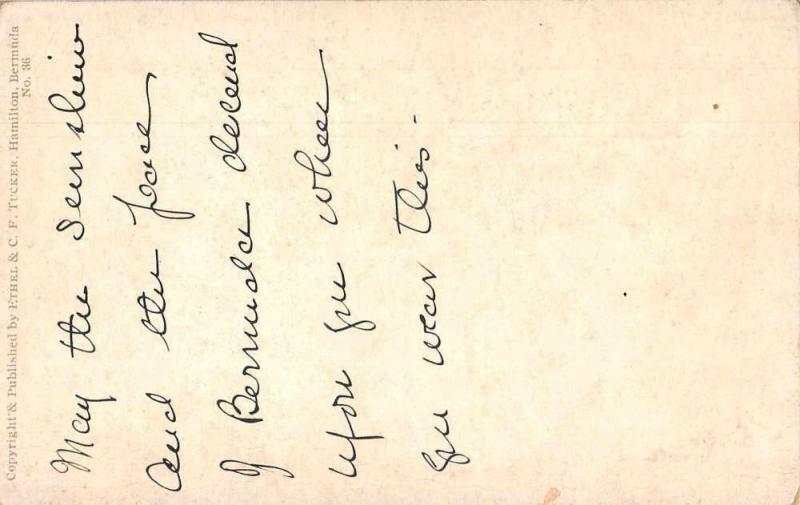 Copyright & Published by ETHEL & C. F. TUCKER, Hamilton, Bermuda
No. 36
May the sunshine
and the peace
of Bermuda descend
upon you when
you wear this.